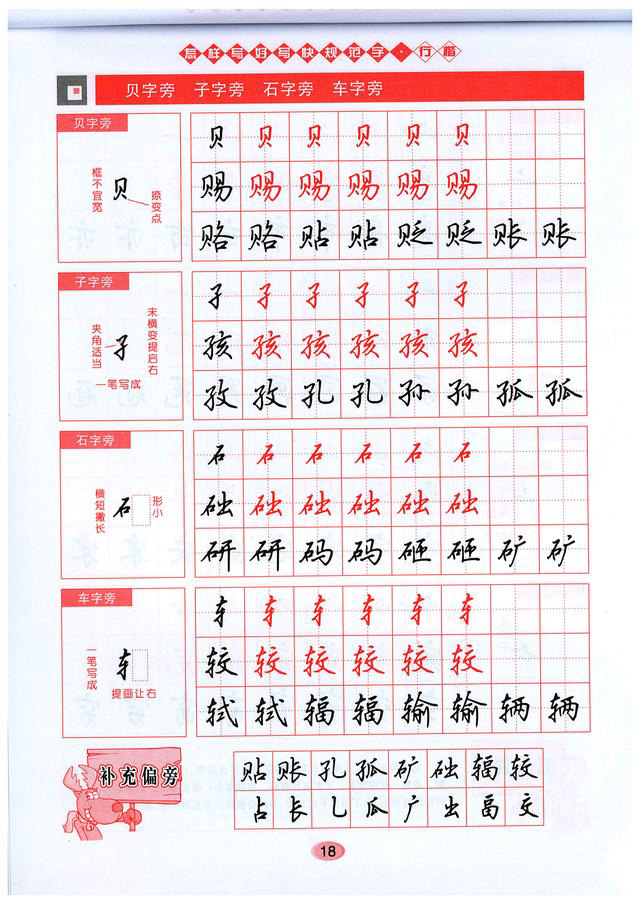 怎样写好写快规范字·行楷
贝字旁 子字旁 石字旁 车字旁
贝字旁
框不宜宽
贝
捺变点
贝 贝 贝 贝 贝 贝
赐 赐 赐 赐 赐 赐
赂 赂 贴 贴 贬 贬 账 账
子字旁
夹角适当
子
末横变提启右
一笔写成
子 子 子 子 子 子
孩 孩 孩 孩 孩 孩
孜 孜 孔 孔 孙 孙 孤 孤
石字旁
横短撇长
石
形小
石 石 石 石 石 石
础 础 础 础 础 础
研 研 码 码 砸 砸 矿 矿
车字旁
一笔写成
车
提画让右
车 车 车 车 车 车
较 较 较 较 较 较
轼 轼 辐 辐 输 输 辆 辆
补充偏旁
贴 账 孔 孤 矿 础 辐 较
占 长 乚 瓜 广 出 畐 交
18